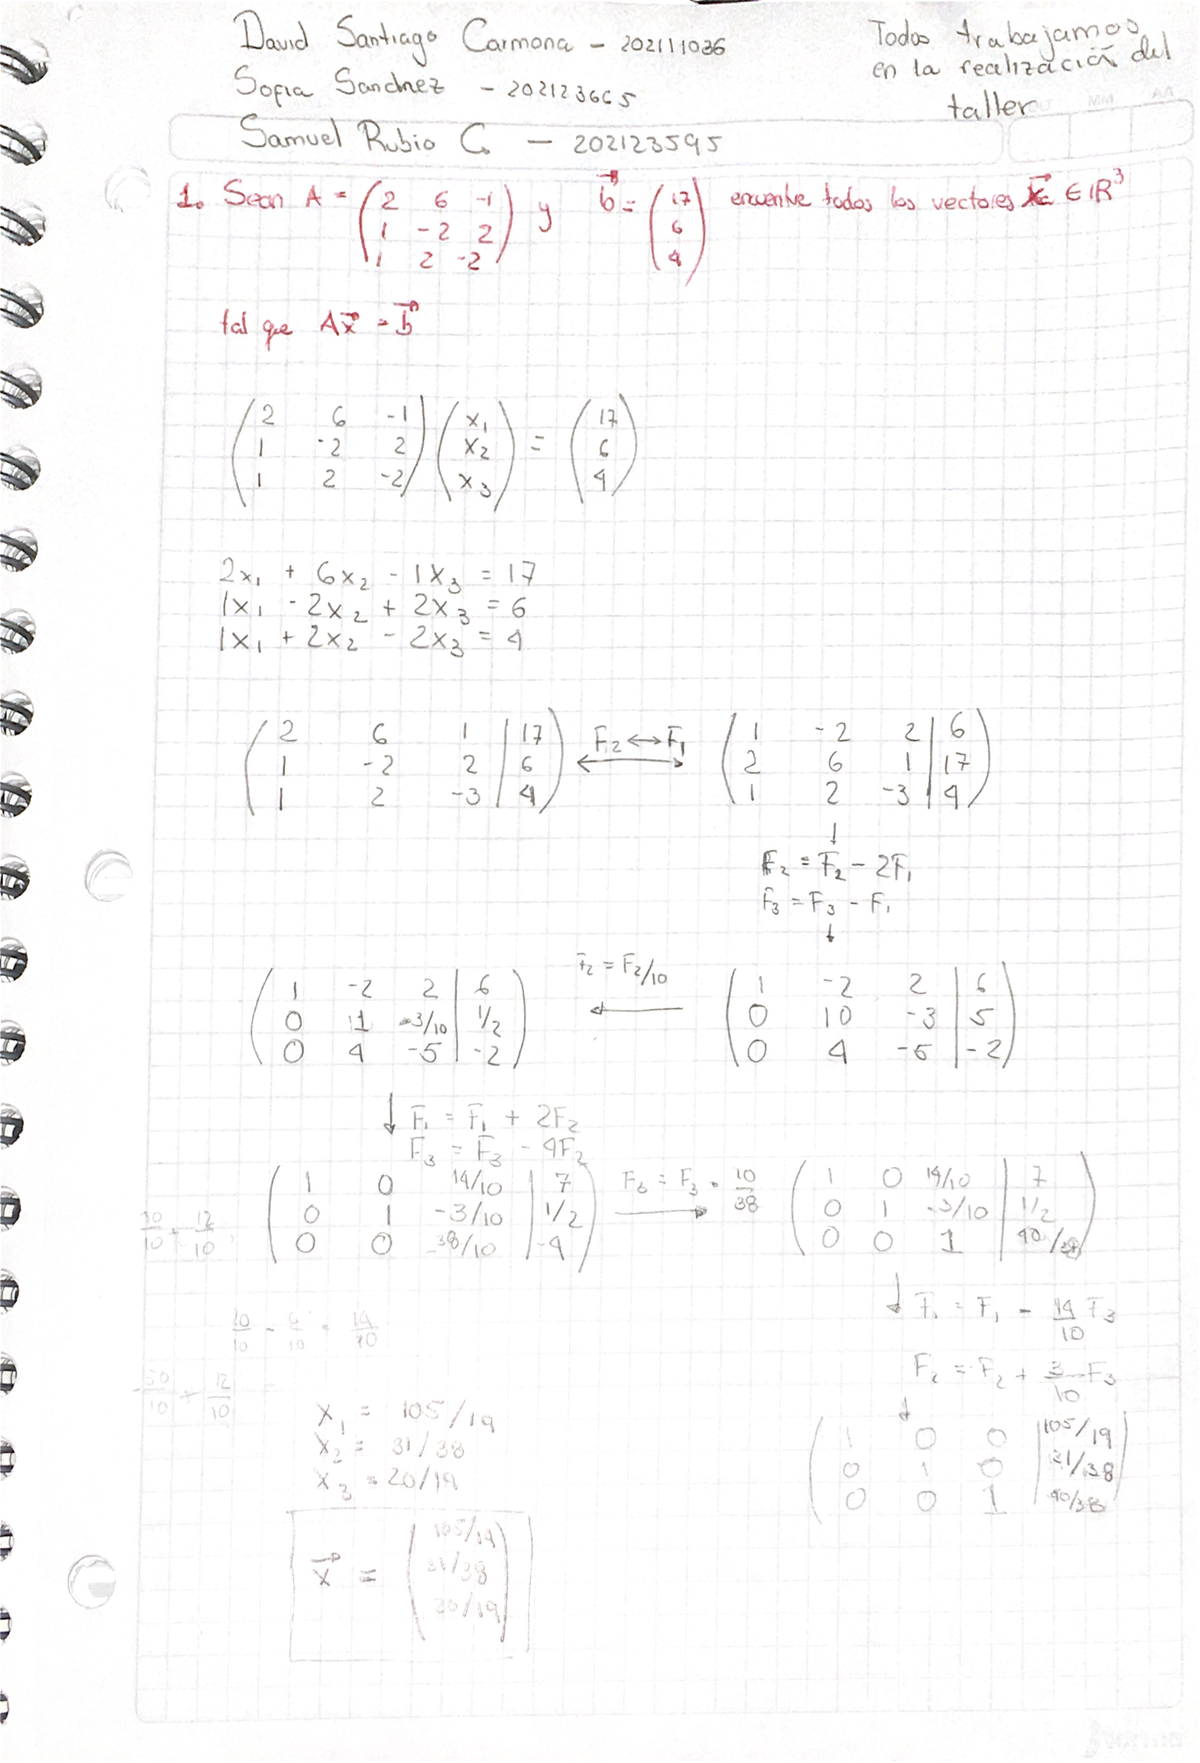 David Santiago Carmona - 202111036
Sofia Sanchez - 202123665
Samuel Rubio C. - 202123595
Todos trabajamos
en la realización del
taller
MM AA
1. Sean A = (2 6 -1) y b = (17) encuentre todos los vectores x ∈ IR³
(1 -2 2) (6)
(1 2 -2) (4)
tal que Ax = b
(2 6 -1) (x₁) = (17)
(1 -2 2) (x₂) (6)
(1 2 -2) (x₃) (4)
2x₁ + 6x₂ - 1x₃ = 17
1x₁ - 2x₂ + 2x₃ = 6
1x₁ + 2x₂ - 2x₃ = 4
(2 6 1 | 17) F₂ ↔ F₁ (1 -2 2 | 6)
(1 -2 2 | 6) (2 6 1 | 17)
(1 2 -3 | 4) (1 2 -3 | 4)
↓
F₂ = F₂ - 2F₁
F₃ = F₃ - F₁
↓
(1 -2 2 | 6) F₂ = F₂/10 (1 -2 2 | 6)
(0 1 -3/10 | 1/2) ← (0 10 -3 | 5)
(0 4 -5 | -2) (0 4 -5 | -2)
↓ F₁ = F₁ + 2F₂
F₃ = F₃ - 4F₂
(1 0 14/10 | 7) F₃ = F₃ · 10/38 (1 0 14/10 | 7)
(0 1 -3/10 | 1/2) → (0 1 -3/10 | 1/2)
(0 0 -38/10 | -4) (0 0 1 | 40/38)
↓ F₁ = F₁ - 14/10 F₃
F₂ = F₂ + 3/10 F₃
↓
(1 0 0 | 105/19)
(0 1 0 | 31/38)
(0 0 1 | 40/38)
x₁ = 105/19
x₂ = 31/38
x₃ = 20/19
x = (105/19)
(31/38)
(20/19)